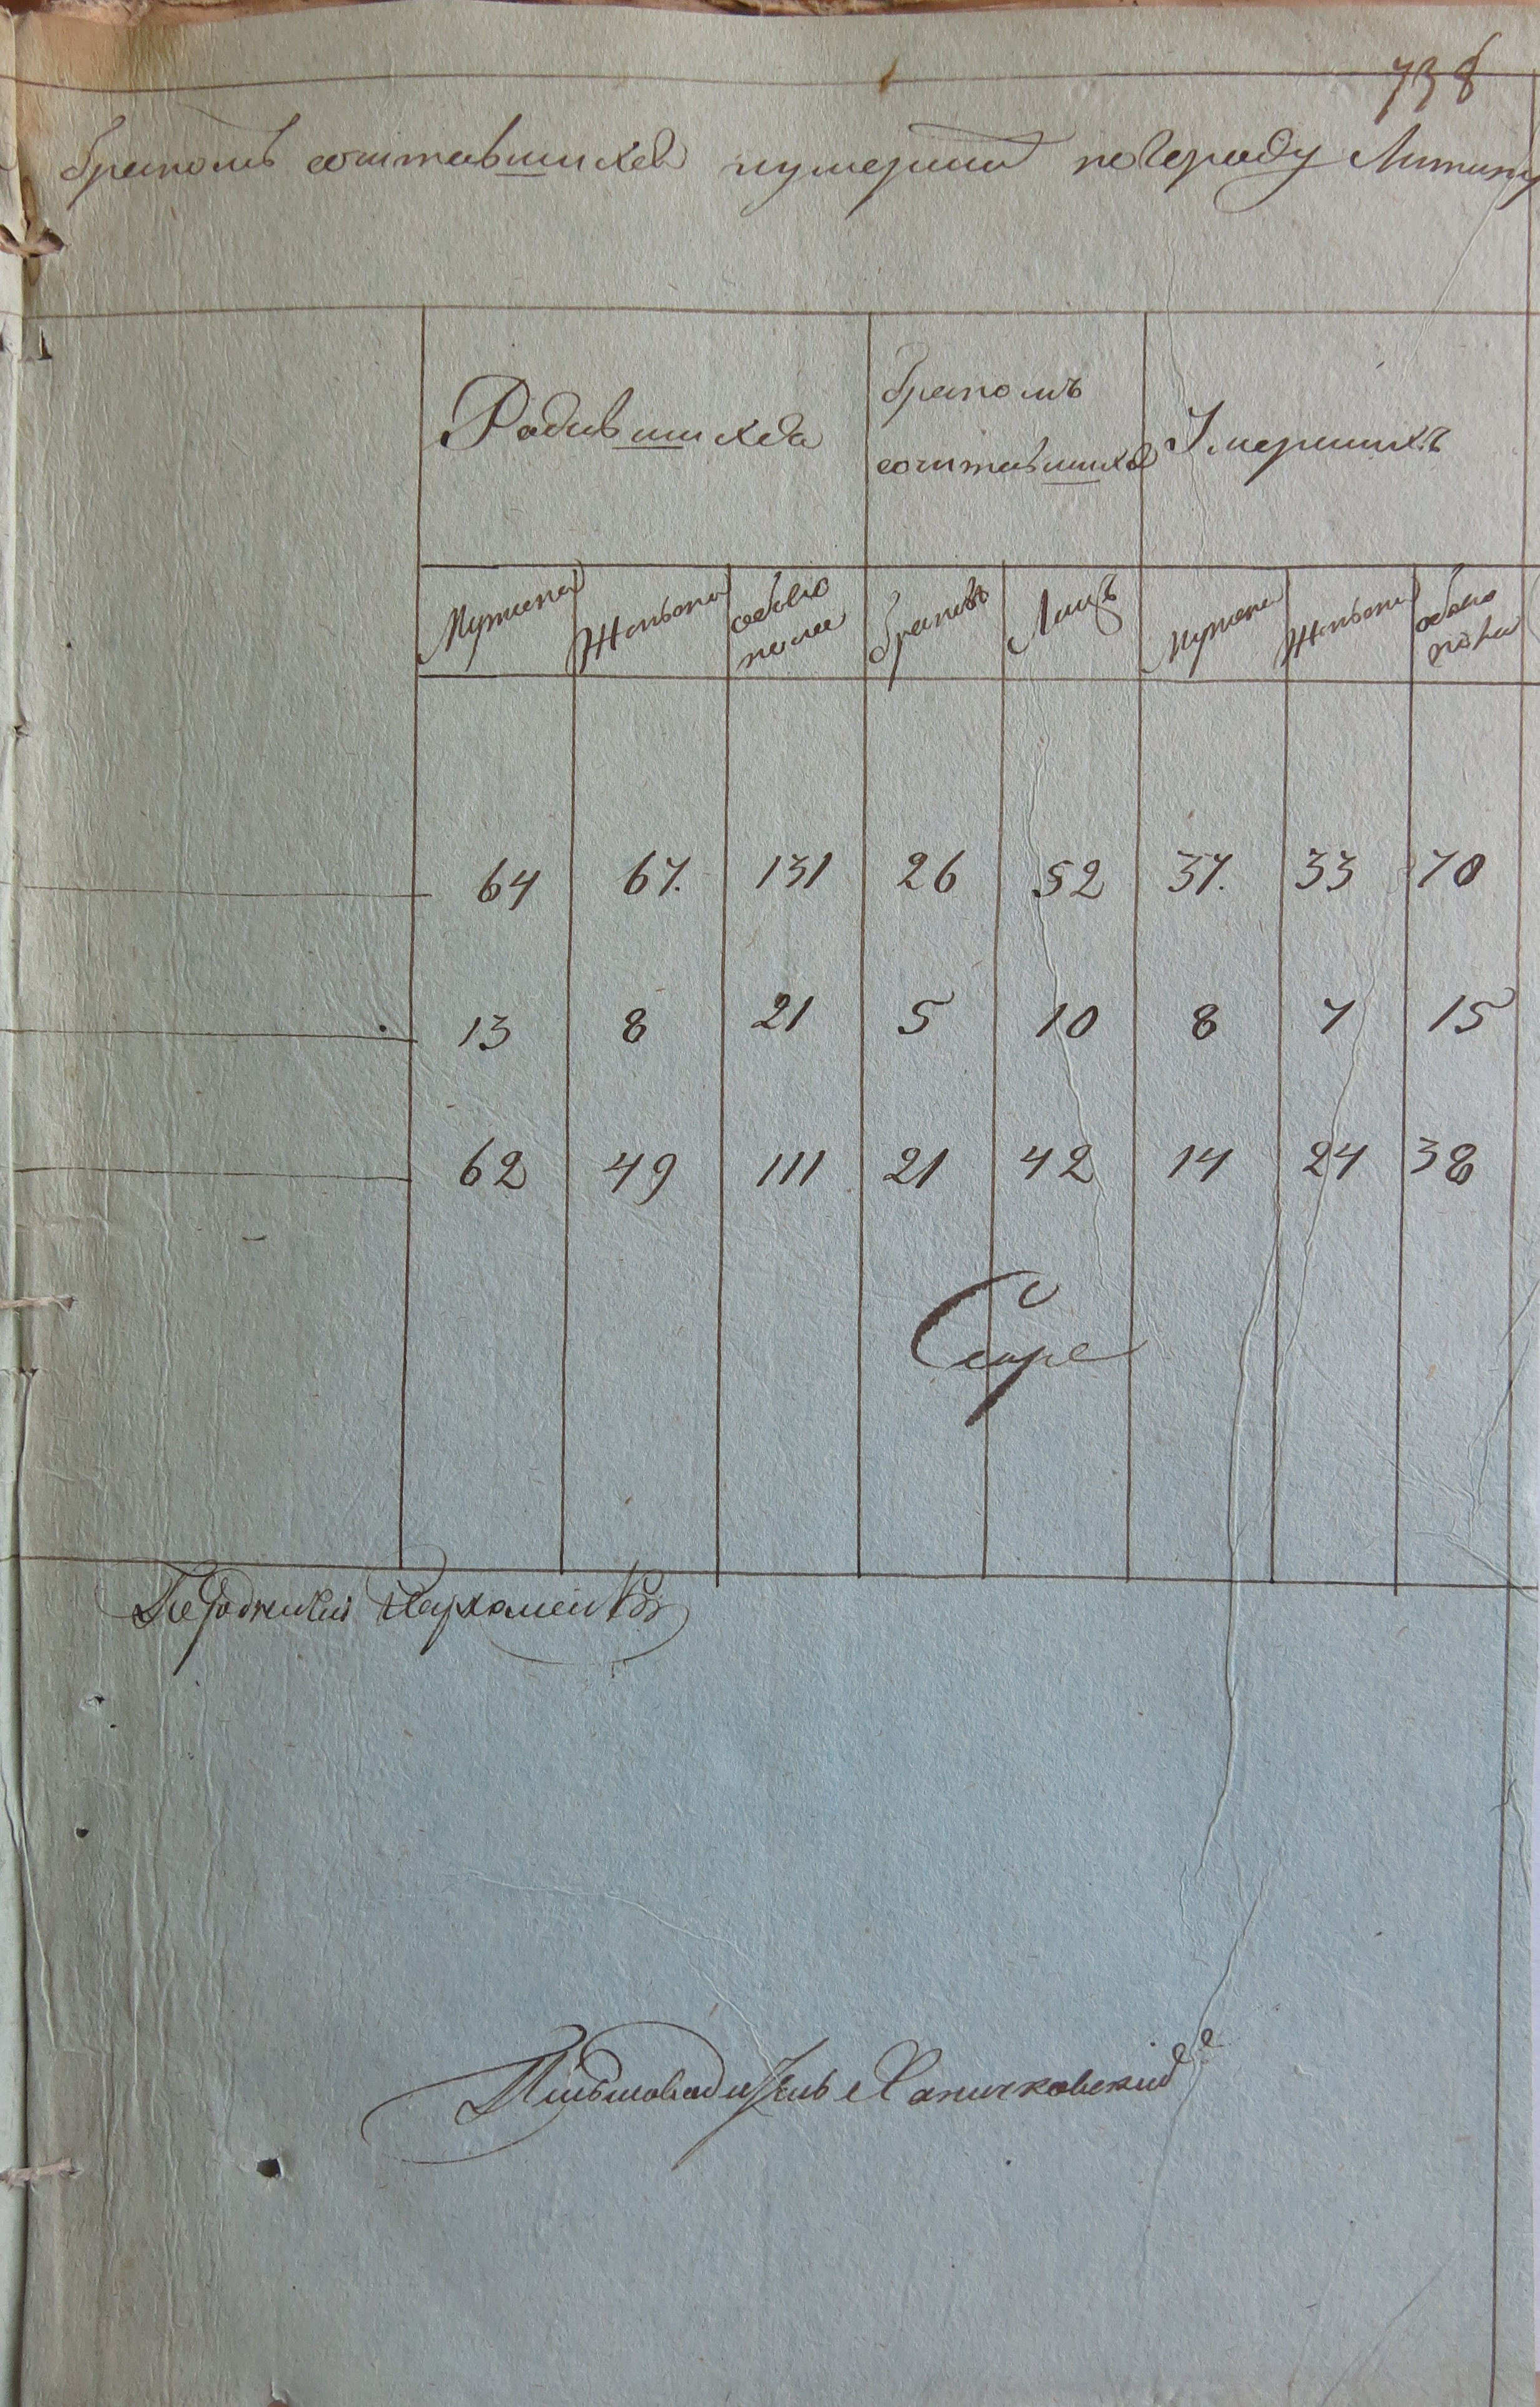 738
бракомъ сочитавшихся иумершихъ погороду Литину
Родившихся
бракомъ
сочитавшихся
Умершихъ
Мужеска Женьска обоего пола браковъ Лицъ Мужеска Женьска обоего пола
64 67. 131 26 52 37. 33 70
13 8 21 5 10 8 7 15
62 49 111 21 42 14 24 38
Городничий Пархоменко
Письмоводитель Ханичковский